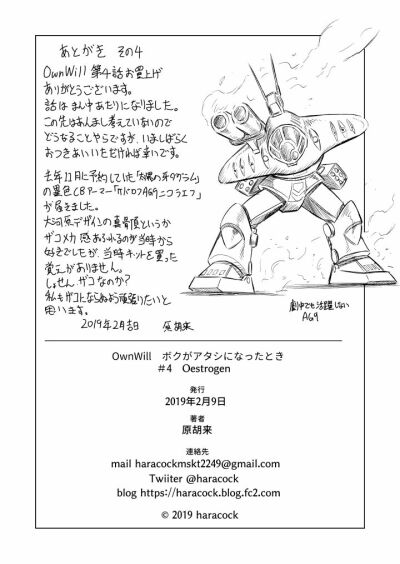 あとがき その4
OwnWill 第4話お買上げ
ありがとうございます。
話はまん中あたりになりました。
この先はあんまし考えていないので
どうなることやらですが、いましばらく
おつきあいいただければ幸いです。
去年11月に予約していた「太陽の牙ダグラム」
の異色CBアーマー「ケバロフAG9ニコラエフ」
が届きました。
大河原デザインの真骨頂というか
ザコメカ感あふれるのが当時から
好きでしたが、当時キットを買った
覚えがありません。
しょせん、ザコなのか?
私もザコにならぬよう頑張りたいと
思います。
2019年2月吉日 原胡来
劇中でも活躍しない
AG9
OwnWill ボクがアタシになったとき
#4 Oestrogen
発行
2019年2月9日
著者
原胡来
連絡先
mail haracockmskt2249@gmail.com
Twiiter @haracock
blog https://haracock.blog.fc2.com
© 2019 haracock